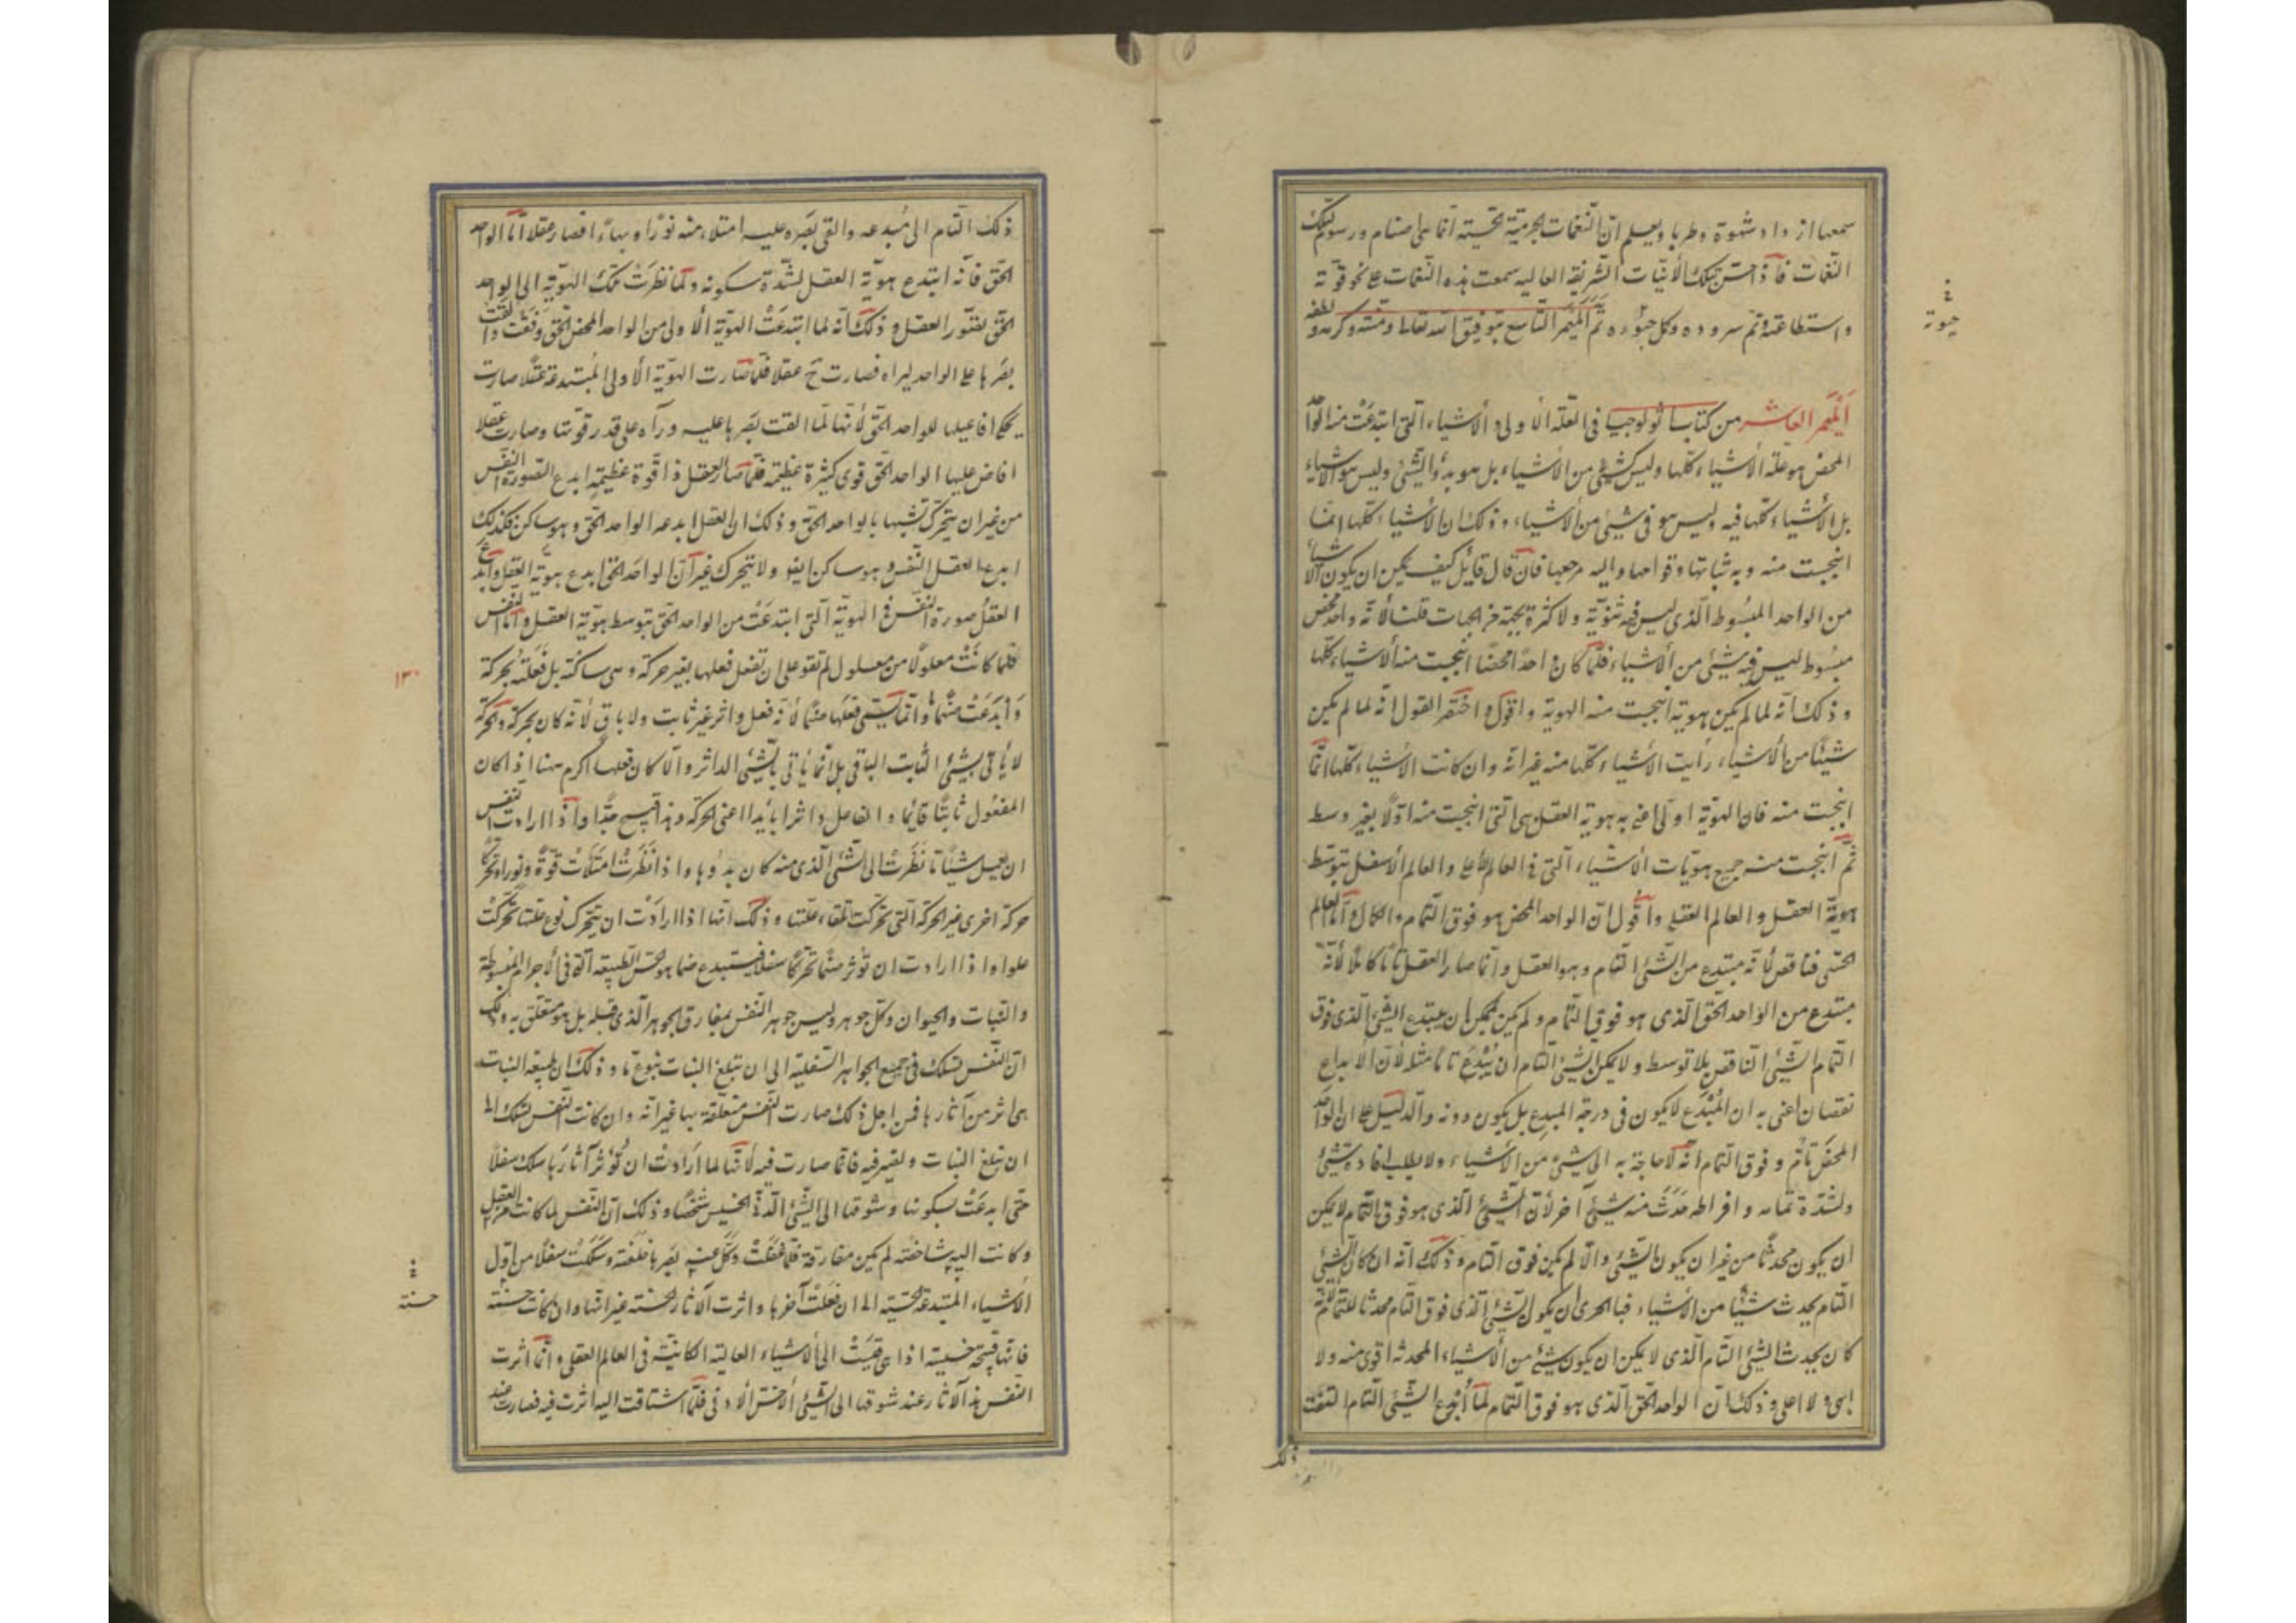 سمعها ازداد شهوة وطربا ويعلم ان النغمات الجرمية الحسية انما هى اصنام ورسوم لتلك
النغمات فاذا احسّ بتلك الأنيات الشريفة العاليه سمعت هذه النغمات على نحو قوته
حيوته
واستطاعته وتم سروده وكل حبوره تم الميمر التاسع بتوفيق الله تعالى ومنّه وكرمه ولطفه
الميمر العاشر من كتاب اثولوجيا فى العلّة الأولى والأشياء التى ابتدعت منه الواحد
المحض هو علّة الأشياء كلّها وليس كشئ من الأشياء بل هو بدؤ الشئ وليس هو الأشياء
بل الأشياء كلّها فيه وليس هو فى شئ من الأشياء وذلك ان الأشياء كلّها انما
انبجست منه وبه ثباتها وقوامها واليه مرجعها فان قال قائل كيف يمكن ان يكون الأشياء
من الواحد المبسوط الّذى ليس فيه ثنويّة ولا كثرة بجهة من الجهات قلت لأنه واحد محض
مبسوط ليس فيه شئ من الأشياء فلمّا كان واحدًا محضًا انبجست منه الأشياء كلّها
وذلك انّه لما لم يكن هوية انبجست منه الهوية واقول واختصر القول انه لما لم يكن
شيئًا من الأشياء رأيت الأشياء كلّها منه غير انّه وان كانت الأشياء كلّها انّما
انبجست منه فان الهويّة اولى اعنى به هوية العقل هى التى انبجست منه اوّلا بغير وسط
ثمّ انبجست منه جميع هويّات الأشياء الّتى فى العالم الأعلى والعالم الأسفل بتوسّط
هويّة العقل والعالم العقلى واقول ان الواحد المحض هو فوق التمام والكمال امّا العالم
الحسّى فناقص لأنه مبتدع من الشئ التام وهو العقل وانّما صار العقل تامّا كاملا لأنّه
مبتدع من الواحد الحق الّذى هو فوق التّمام ولم يكن يمكن ان يبتدع الشئ الّذى فوق
التّمام الشئ الناقص بلا توسط ولا يمكن الشئ التام ان يُبدع تامّا مثله لأن الابداع
نقصان اعنى به ان المُبدَع لا يكون فى درجة المبدِع بل يكون دونه والدليل على ان الواحد
المحض تامّ وفوق التمام انّه لا حاجة به الى شئ من الأشياء ولا يطلب افادة شئ
ولشدّة تمامه وافراطه حدث منه شئ آخر لأن الشئ الّذى هو فوق التمام لا يمكن
ان يكون محدثًا من غير ان يكون الشئ والّا لم يكن فوق التمام وذلك انّه ان كان الشئ
التام يحدث شيئًا من الأشياء فبالحرى ان يكون الشئ الّذى فوق التمام محدثا للتمام لانّه
كان يحدث الشئ التام الّذى لا يمكن ان يكون شئ من الأشياء المحدثة اقوى منه ولا
ابهى ولا اعلى وذلك ان الواحد الحق الّذى هو فوق التّمام لمّا أبدع الشئ التام التفت
ذلك
ذلك التام الى مُبدعه والقى بَصَره عليه امتلاء منه نورًا وبهاءً افصار عقلا امّا الواحد
الحقّ فانه ابتدع هويّة العقل لشدّة سكونه ولمّا نظرَت تلك الهويّة الى الواحد
الحقّ بصّور العقل وذلك انّه لما ابتدعَت الهويّة الأولى من الواحد المحض الحق وقفت والقت
بَصَرها على الواحد ليراه فصارت ح عقلا فلمّا صارت الهويّة الأولى المُبتدعة عقلًا صارت
يحكى افاعيلها للواحد الحقّ لأنّها لمّا القت بصَرها عليه ورآه على قدر قوّتها وصارت عقلا
افاض عليها الواحد الحقّ قوى كثيرة عظيمة فلمّا صار العقل ذا قوّة عظيمة ابدع الصورة النفس
من غير ان يتحرّك تشبها بالواحد الحقّ وذلك ان العقل ابدعه الواحد الحق وهو ساكن فكذلك
ابدع العقل النّفس وهو ساكن ايضا ولا يتحرك غير انّ الواحد الحق ابدع هويّة العقل وابدع
العقلُ صورة النفس فى الهويّة الّتى ابتدعَت من الواحد الحقّ بتوسط هويّة العقل وامّا النفس
فلمّا كانت معلولًا من معلول لم تقو على ان تفعل فعلها بغير حركة وهى ساكنة بل فعلته بحركة
١٣٠
وابدعت صنمًا وانّما يسمّى فعلها صنمًا لأنّه فعل داثر غير ثابت ولا باقٍ لأنّه كان بحركة والحركة
لا يأتى بشئ الثابت الباقى بل انّما يأتى بالشئ الداثر والّا كان فعلها اكرم منها اذ كان
المفعول ثابتًا قائما والفاعل داثرا بائدا اعنى الحركة وهذا قبيح جدًّا واذا ارادت النفس
ان تعمل شيئًا ما نظَرت الى الشئ الّذى منه كان بدؤها واذا نظَرت امتلأت قوّة ونورا وتحرّكا
حركة اخرى غير الحركة الّتى تحرّكت تلقاء علّتها وذلك انّها اذا ارادت ان تتحرك نحو علّتها تحرّكت
علوا واذا ارادت ان تؤثر صنمًا تحركًا سفلا فيبتدع صنما هو الحسّ والطبيعة الّتى فى الأجرام المبسوطة
والنّبات والحيوان وكلّ جوهر وليس جوهر النّفس بمفارق الجوهر الّذى قبله بل هو متعلّق به وذلك
انّ النّفس تسلك فى جميع الجواهر السّفليّة الى ان تبلغ النبات بنوع ما وذلك ان طبيعة النبات
هى اثر من آثارها فمن اجل ذلك صارت النفس متعلّقة بها غير انّه وان كانت النفس تسلك الى
ان تبلغ النبات ويصير فيه فانّما صارت فيه لأنّها لما ارادت ان تُؤثر آثارَها سلك سفلًا
حتى ابدعَت بسكونها وشوقها الى الشئ الدّنى الخسيس شخصًا وذلك انّ النّفس لما كانت فى العقل
وكانت اليه شاخصة لم يكن مفارقة فلما غفلت وكلّ عنه بصرها خلّفته وسلكت سفلًا من اوّل
الأشياء المبتدعة الحسّية الى ان فعلت آخرها واثرت الآثار الحسنة غير انّها وان كانت حسنة
حسنة
فانّها قبيحة خسيسة اذا هى قيست الى الأشياء العالية الكائنة فى العالم العقلى وانّما اثرت
النّفس هذه الآثار عند شوقها الى الشئ الأخسّ الأدنى فلمّا اشتاقت اليه اثرت فيه فصارت عنه